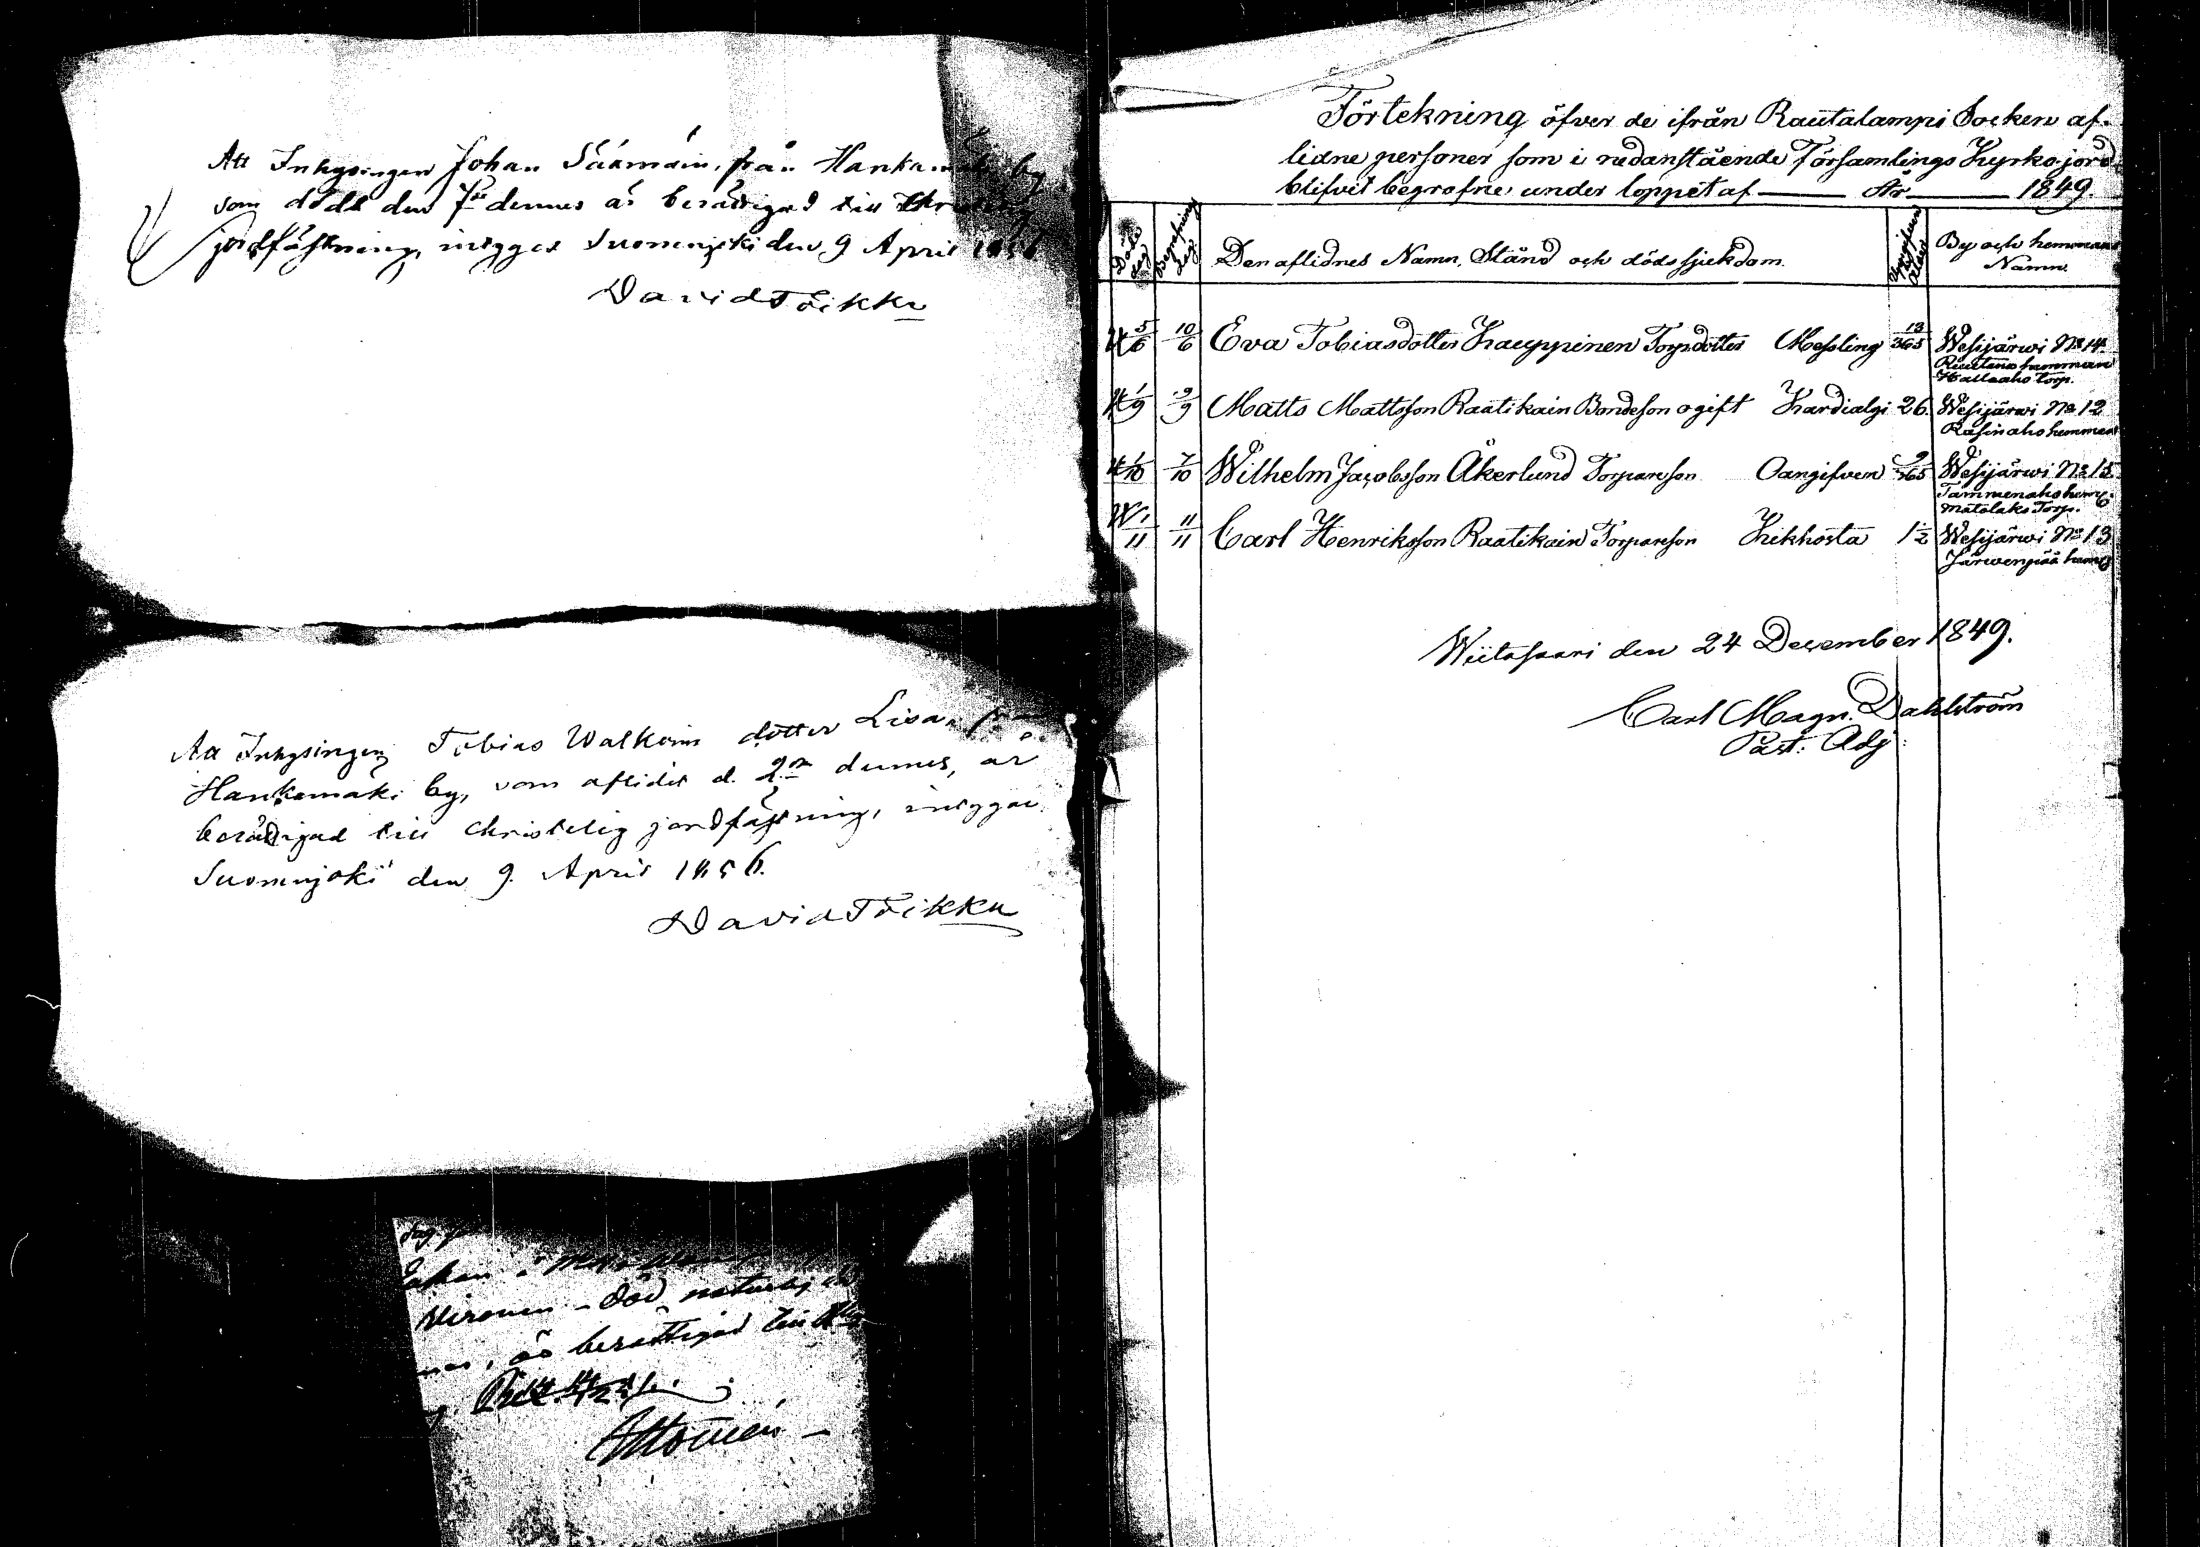 Att Inhysingen Johan Säämäin, från Hankamäki by
som dödt den 7de dennes är berättigad till Christelig
jordfästning, intygges Suonenjoki den 9 April 1856
David Toikka
Att Inhysingen Tobias Walkoins dotter Lisa, från
Hankamäki by, som aflidit d. 2dn dennes, är
berättigad till Christelig jordfästning, intygar
Suonenjoki den 9. April 1856.
David Toikka
Johan
Hironen - död naturlig
är berättigad till
Förtekning öfver de ifrån Rautalampi Socken af-
lidne personer som i nedanstående Församlings Kyrkojord
blifvit begrafne under loppet af — År — 1849.
Döds dag Begrafnings dag Den aflidnes Namn, Stånd och dödssjukdom. Ålder By och hemmans
Namn.
5/6 10/6 Eva Tobiasdotter Kauppinen Torp.dotter Messling 13/365 Wesijärwi No 14.
Ruutana hemman
Hallaaho torp.
1/9 9/9 Matts Mattsson Raatikain Bondeson ogift Kardialgi 26. Wesijärwi No 12
Räsinaho hemman
1/10 7/10 Wilhelm Jacobsson Åkerlund Torpareson Oangifven 9/365 Wesijärwi No 15
Tammenaho hem:
Matolaks Torp.
1/11 11/11 Carl Henriksson Raatikain Torpareson Kikhosta 1 1/2 Wesijärwi No 13
Järwenpää hem:
Wiitasaari den 24 December 1849.
Carl Magn. Dahlström
Past: Adj: